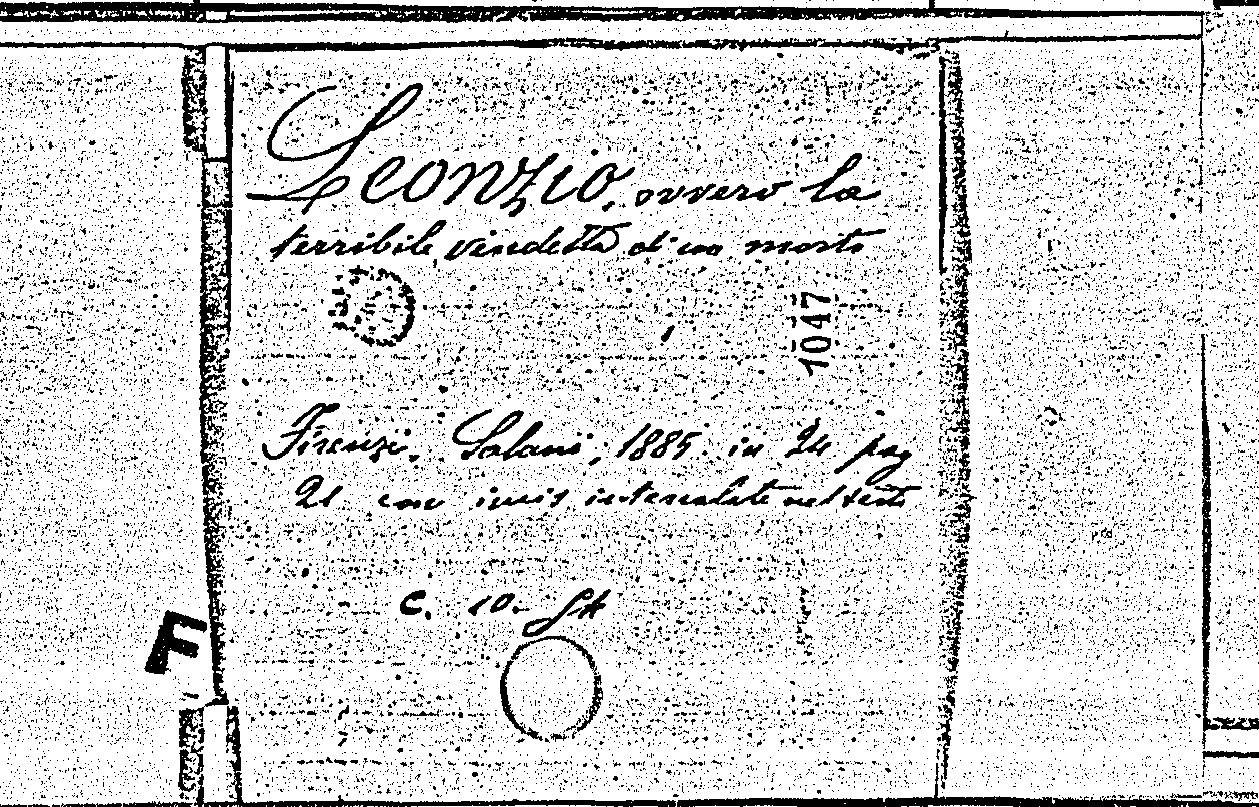 Leonzio, ovvero la
terribile vendetta di un morto
1047
Firenze. Salani, 1885. in 24 pag
24 con incis intercalate nel testo
C. 10.
F